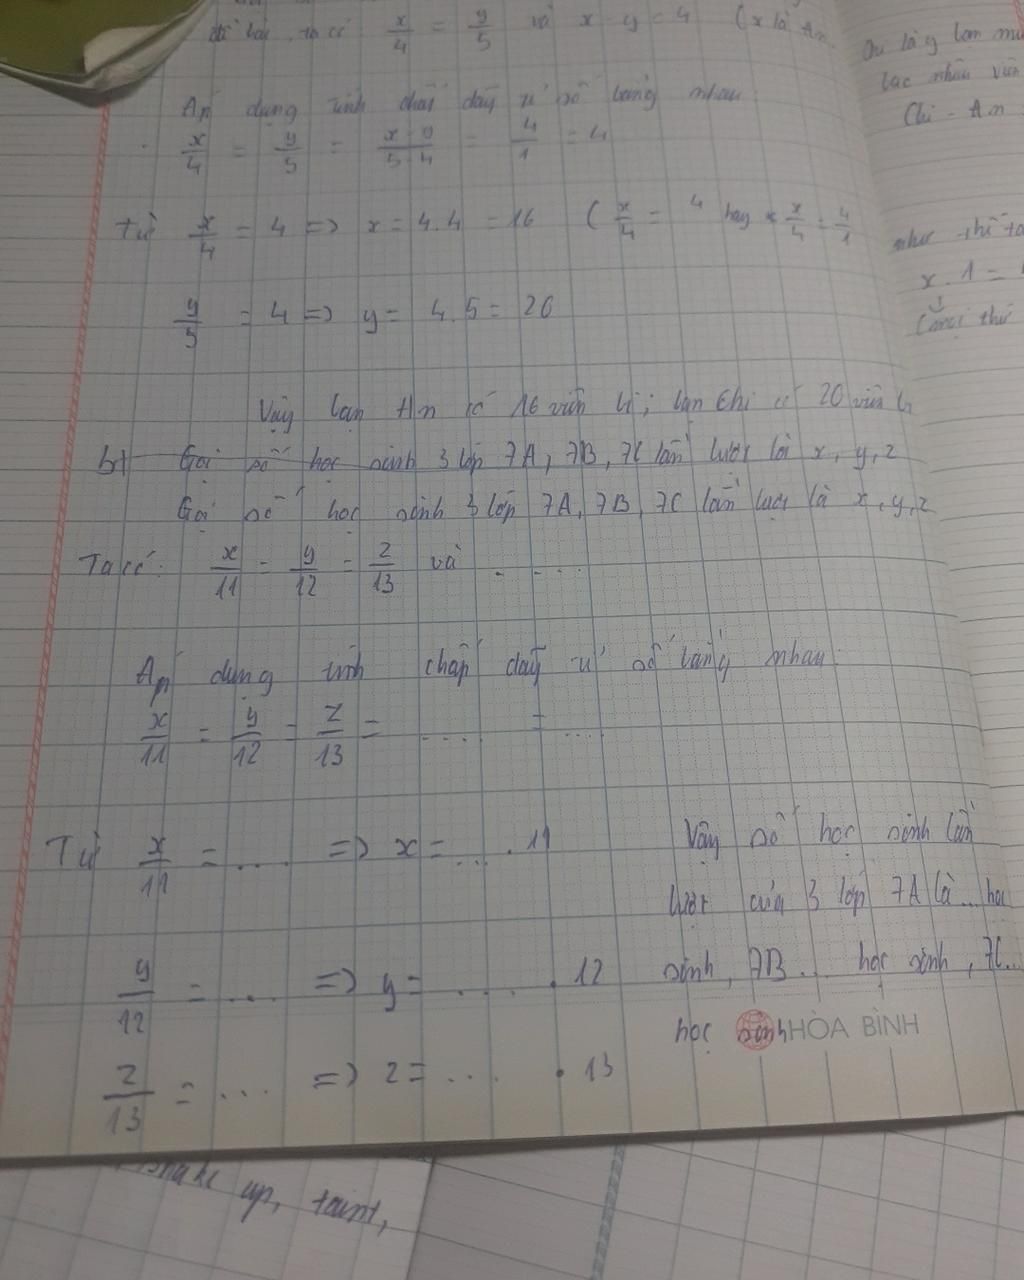 đề bài, ta có x/4 = y/5 và x - y = 4 (x là An
Áp dụng tính chất dãy tỉ số bằng nhau:
x/4 = y/5 = x-y/5-4 = 4/1 = 4
Từ x/4 = 4 => x = 4.4 = 16 (x/4 = 4 hay x/4 = 4/1
y/5 = 4 => y = 4.5 = 20
Vậy bạn An có 16 viên bi; bạn Chi có 20 viên bi
b) Gọi số học sinh 3 lớp 7A, 7B, 7C lần lượt là x, y, z
Gọi số học sinh 3 lớp 7A, 7B, 7C lần lượt là x, y, z
Ta có: x/11 = y/12 = z/13 và . ...
Áp dụng tính chất dãy tỉ số bằng nhau:
x/11 = y/12 = z/13 = .... = ...
Từ x/11 = ... => x = ... . 11
y/12 = ... => y = .... . 12
z/13 = ... => z = ... . 13
Vậy số học sinh lần
lượt của 3 lớp 7A là ... học
sinh, 7B ... học sinh, 7C...
học sinh
HÒA BÌNH
là y
Chi - An
như thế ta
x . 1 =
make up, taint,